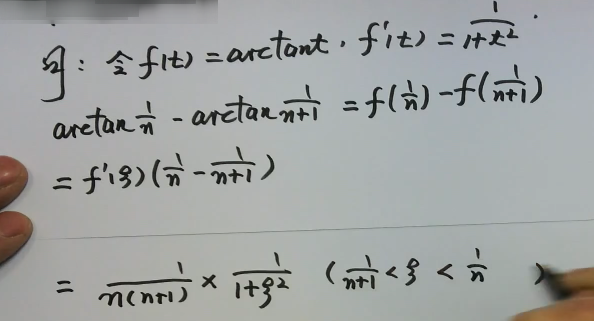 解：令 f(t) = arctant . f'(t) = \frac{1}{1+t^2} .
arctan \frac{1}{n} - arctan \frac{1}{n+1} = f(\frac{1}{n}) - f(\frac{1}{n+1})
= f'(ξ)(\frac{1}{n} - \frac{1}{n+1})
= \frac{1}{n(n+1)} × \frac{1}{1+ξ^2} (\frac{1}{n+1} < ξ < \frac{1}{n} )